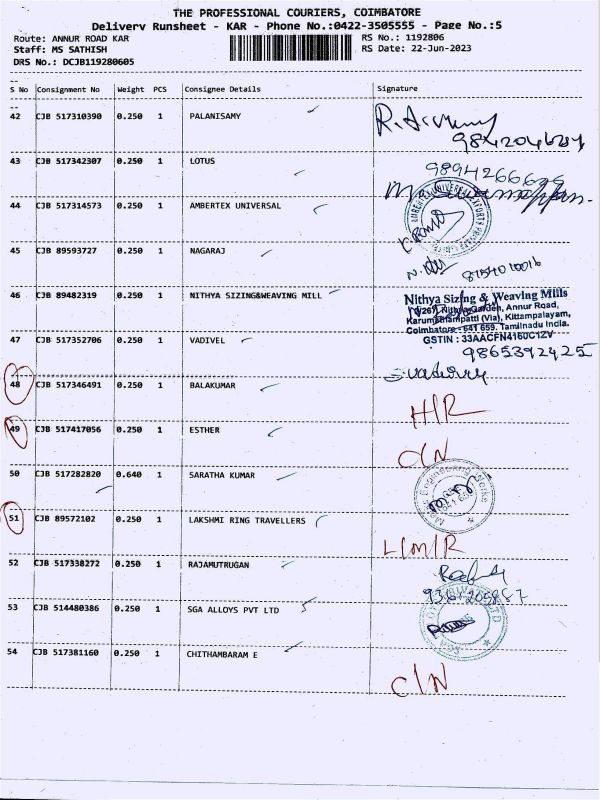 THE PROFESSIONAL COURIERS, COIMBATORE
Delivery Runsheet - KAR - Phone No.:0422-3505555 - Page No.:5
Route: ANNUR ROAD KAR RS No.: 1192806
Staff: MS SATHISH RS Date: 22-Jun-2023
DRS No.: DCJB119280605
S No Consignment No Weight PCS Consignee Details Signature
42 CJB 517310390 0.250 1 PALANISAMY
43 CJB 517342307 0.250 1 LOTUS
44 CJB 517314573 0.250 1 AMBERTEX UNIVERSAL
45 CJB 89593727 0.250 1 NAGARAJ
46 CJB 89482319 0.250 1 NITHYA SIZING&WEAVING MILL
Nithya Sizing & Weaving Mills
Annur Road,
Karumathampatti (Via), Kittampalayam,
Coimbatore - 641 659. Tamilnadu India.
GSTIN : 33AACFN4160C1ZV
47 CJB 517352706 0.250 1 VADIVEL
9865392425
48 CJB 517346491 0.250 1 BALAKUMAR
H/R
49 CJB 517417056 0.250 1 ESTHER
C/N
50 CJB 517282820 0.640 1 SARATHA KUMAR
51 CJB 89572102 0.250 1 LAKSHMI RING TRAVELLERS
L/M/R
52 CJB 517338272 0.250 1 RAJAMUTRUGAN
53 CJB 514480386 0.250 1 SGA ALLOYS PVT LTD
54 CJB 517381160 0.250 1 CHITHAMBARAM E
C/N